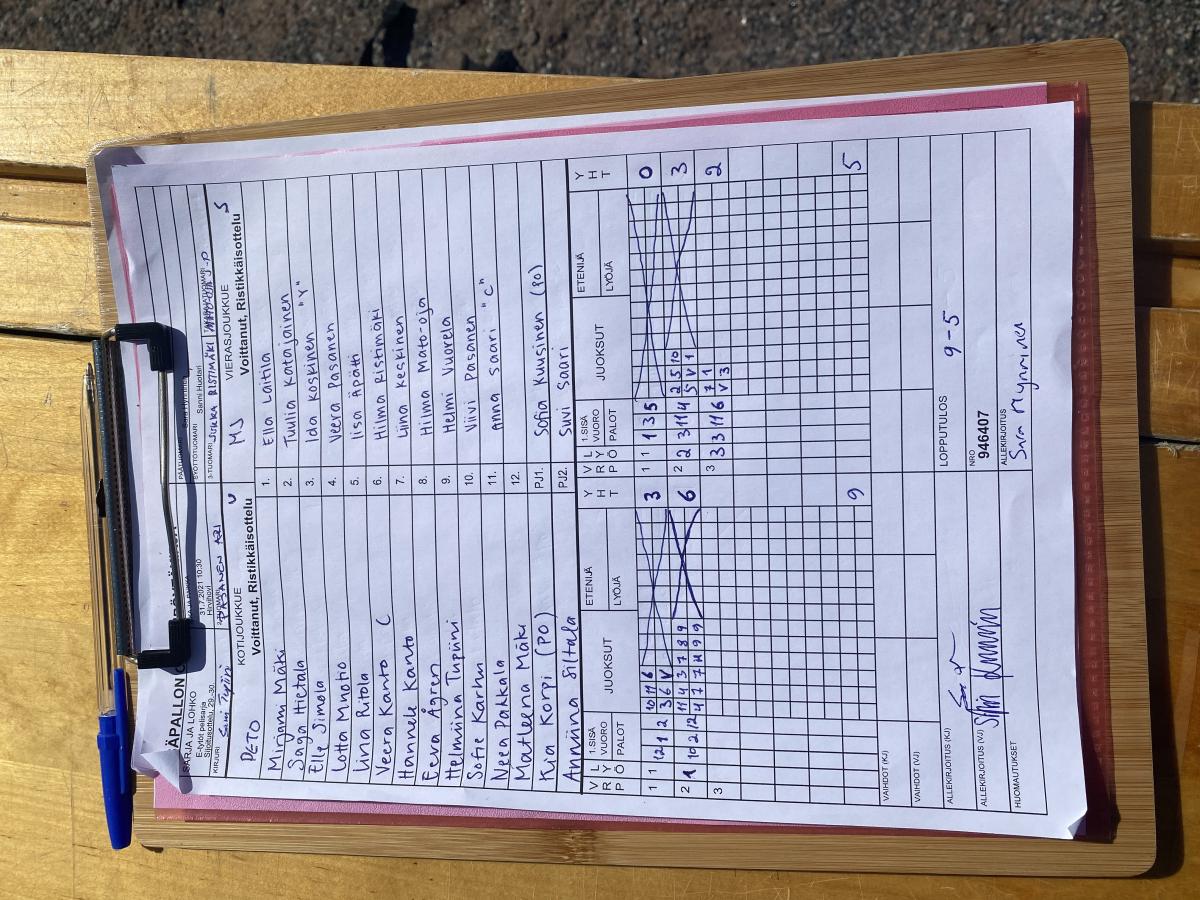 SARJA JA LOHKO
E-tytöt pelisarja
Sijoitusottelu, 29.-30.
KIRJURI
31.7.2021 10:30
Hirvihovi
PASANEN
SYÖTTÖTUOMARI Sanni Huotari
3-TUOMARI JUKKA RISTIMÄKI
KOTIJOUKKUE
PETO
Voittanut, Ristikkäisottelu
Mirjami Mäki
Saga Hietala
Elle Simola
Lotta Mnotio
Iina Ritola
Veera Kanto C
Hannele Kanto
Eeva Ågren
Helmiina Tupiini
Sofie Karhu
Neea Pakkala
Matleena Mäki
Kia Korpi (PO)
Anniina Siltala
VIERASJOUKKUE
MJ
Voittanut, Ristikkäisottelu
1. Ella Laitila
2. Tuulia Katajainen
3. Ida Koskinen "Y"
4. Veera Pasanen
5. Iisa Äpätti
6. Hilma Ristimäki
7. Liina Keskinen
8. Hilma Mato-oja
9. Helmi Vuorela
10. Viivi Pasanen
11. Anna Saari "C"
12.
PJ1. Sofia Kuusinen (PO)
PJ2. Suvi Saari
VRP LYÖ 1.SISÄ VUORO PALOT JUOKSUT ETENIJÄ LYÖJÄ YHT
1 1 12 1 2 10 11 6 3
3 6 V
2 1 10 2 12 11 4 3 7 8 9 6
4 7 7 11 9 9
3
9
VRP LYÖ 1.SISÄ VUORO PALOT JUOKSUT ETENIJÄ LYÖJÄ YHT
1 1 1 3 5 0
2 2 3 11 4 2 5 10 3
5 V 1
3 3 3 11 6 7 1 2
V 3
5
VAIHDOT (KJ)
VAIHDOT (VJ)
ALLEKIRJOITUS (KJ)
ALLEKIRJOITUS (VJ)
HUOMAUTUKSET
LOPPUTULOS 9-5
NRO
946407
ALLEKIRJOITUS
Sara Mynninen